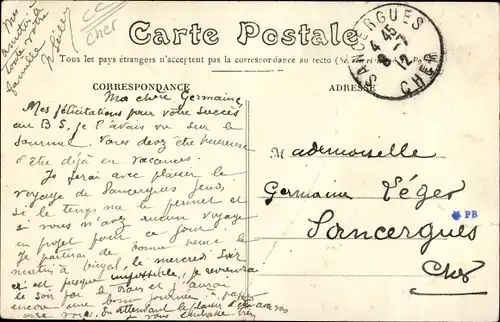 Mes
amitiés à
toute votre
famille
Cher
Carte Postale
Tous les pays étrangers n'acceptent pas la correspondance au recto
CORRESPONDANCE
ADRESSE
SANCERGUES
4 45
8 -7
12
CHER
Ma chère Germaine
Mes félicitations pour votre succès
au B S, je l'avais vu sur le
journal. Vous devez être heureuse
d'être déjà en vacances.
Je ferai avec plaisir le
voyage de Sancergues Jeudi
si le temps me le permet et
si vous n'avez aucun voyage
en projet pour ce jour
Je partirai de bonne heure le
matin à le mercredi soir
ci est presque impossible, je reviendrai
le soir par le train et j'aurai
encore une bonne journée à passer
avec vous. En attendant le plaisir d'être avec vous
je vous embrasse
Mademoiselle
Germaine Léger
Sancergues
Cher
PB